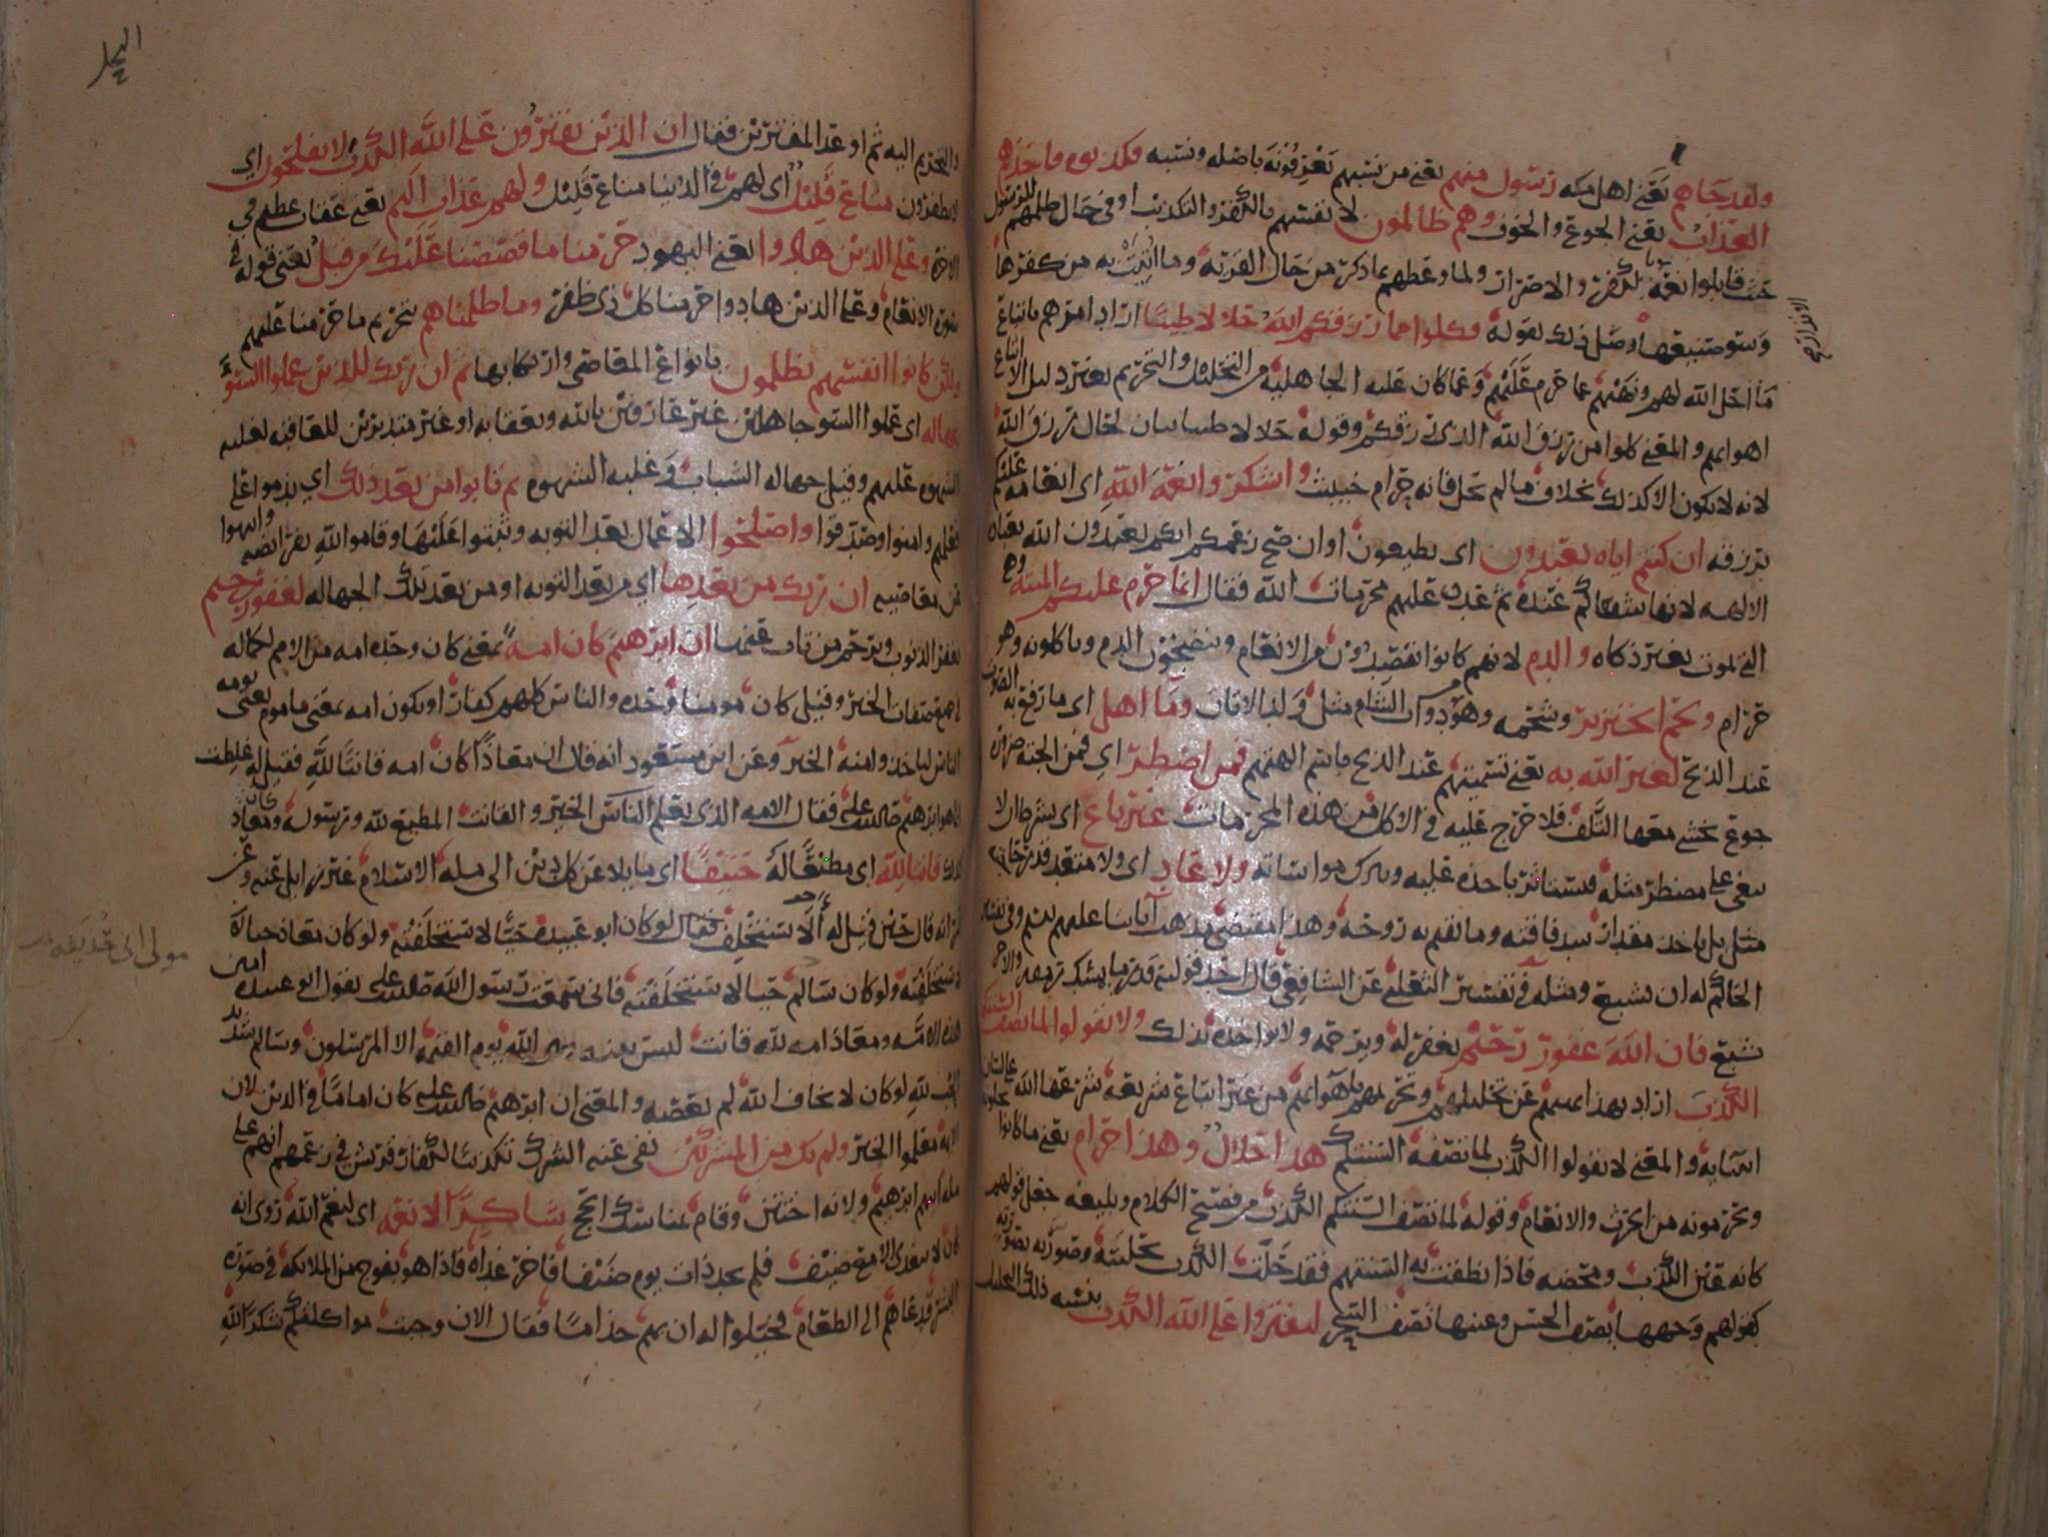 ولقد جاهم يعني اهل مكه رسول منهم يعني من نسبهم يعرفونه باصله ونسبه فكذبوه فاخذهم
العذاب يعني الجوع والخوف وهم ظالمون لانفسهم بالكفر والتكذيب او في حال ظلمهم للرسول
حيث قابلوا نعمه بالكفر والاضرار ولما وعظهم بما ذكر من حال القرية وما اتيت به من كفرها
وسو صنيعها وصل ذلك بقوله فكلوا مما رزقكم الله حلالا طيبا اراد امرهم باتباع
ما احل الله لهم ونهيهم عما حرم عليهم وعما كان عليه الجاهلية من التحليل والتحريم بغير دليل الا اتباع
اهوايهم والمعنى كلوا من رزق الله الذي رزقكم وقوله حلالا طيبا بيان لحال رزق الله
لانه لا يكون الا كذلك بخلاف ما لم يحل فانه حرام خبيث واشكروا نعمة الله اي انعامه عليكم
برزقه ان كنتم اياه تعبدون اي تطيعون او ان صح زعمكم انكم تعبدون الله بعبادة
الالهه لانها شفعاكم عنده ثم عدد عليهم محرمات الله فقال انما حرم عليكم الميتة وهي
التي تموت بغير ذكاه والدم لانهم كانوا يفصدون من الانعام وينضجون الدم وياكلونه وهو
حرام ولحم الخنزير وشحمه وهو دواب الشام مثل ولد الاتان وما اهل اي ما رفع به الصوت
عند الذبح لغير الله به يعني تسميتهم عند الذبح باسم الهتهم فمن اضطر اي فمن الجته ضرورة
جوع يخشى معها التلف فلا حرج عليه في الاكل من هذه المحرمات غير باغ اي بشرط ان لا
يبغي على مضطر مثله فيستاثر باخذه عليه وبترك مواساته ولا عاد اي ولا متعد قدر حاجته
مثل بل ياخذ مقدار سد فاقته وما تقيم به روحه وهذا مقتضى مذهب ابائنا عليهم السلام وفي تفسير
الحاكم له ان يشبع ومثله في تفسير الثعلبي عن الشافعي قال احد قوليه قدر ما يمسك رمقه والاخر
شبع فان الله غفور رحيم يغفر له ويرحمه ولا يواخذه بذلك ولا تقولوا لما تصف السنتكم
الكذب اراد بهذا نهيهم عن تحليلهم وتحريمهم باهوائهم من غير اتباع شريعه شرعها الله على لسان
انبيايه والمعنى لا تقولوا الكذب لما تصفه السنتكم هذا حلال وهذا حرام يعني ما كانوا يحلونه
ويحرمونه من الحرث والانعام وقوله لما تصف السنتكم الكذب من فصيح الكلام وبليغه جعل قولهم
كانه عين الكذب ومحضه فاذا نطقت به السنتهم فقد حلت الكذب بحليته وصورته بصورته
كقولهم وجهها يصف الحسن وعينها تصف السحر لتفتروا على الله الكذب بنسبه ذلك التحليل
الانذار صح
النحل
والتحريم اليه ثم اوعد المفترين فقال ان الذين يفترون على الله الكذب لا يفلحون اي
لا يظفرون متاع قليل اي لهم في الدنيا متاع قليل ولهم عذاب اليم يعني عقاب عظيم في
الاخرة وعلى الذين هادوا يعني اليهود حرمنا ما قصصنا عليك من قبل يعني قوله في
سورة الانعام وعلى الذين هادوا حرمنا كل ذي ظفر وما ظلمناهم بتحريم ما حرمنا عليهم
ولكن كانوا انفسهم يظلمون بانواع المعاصي وارتكابها ثم ان ربك للذين عملوا السوء
بجهالة اي عملوا السو جاهلين غير عارفين بالله وبعقابه او غير متدبرين للعاقبه لغلبه
الشهوه عليهم وقيل جهاله الشباب وغلبه الشهوه ثم تابوا من بعد ذلك اي ندموا على
فعلهم وامنوا وصدقوا واصلحوا الاعمال بعد التوبه وثبتوا عليها وقاموا لله بفرايضه وانتهوا
عن معاصيه ان ربك من بعدها اي من بعد التوبه او من بعد تلك الجهاله لغفور رحيم
يغفر الذنوب ويرحم من تاب عنها ان ابرهيم كان امة بمعنى كان وحده امه من الامم لكماله
في جميع صفات الخير وقيل كان مومنا وحده والناس كلهم كفار او يكون امه بمعنى ماموم يعني يومه
الناس لياخذوا منه الخير وعن ابن مسعود انه قال ان معاذا كان امه قانتا لله فقيل له غلطت
انما هو ابرهيم صلى الله عليه فقال الامه الذي يعلم الناس الخير والقانت المطيع لله ورسوله وكان معاذ
كذلك قانتا لله اي مطيعا له حنيفا اي مايلا عن كل دين الى مله الاسلام غير زايل عنه وعن
عمر انه قال حين قيل له الا تستخلف فقال لو كان ابو عبيدة حيا لاستخلفته ولو كان معاذ حيا
لاستخلفته ولو كان سالم حيا لاستخلفته فاني سمعت رسول الله صلى الله عليه يقول ابو عبيدة امين
هذه الامه ومعاذ امه لله قانت ليس بينه وبين الله يوم القيمه الا المرسلون وسالم شديد
الحب لله لو كان لا يخاف الله لم يعصه والمعنى ان ابرهيم صلى الله عليه كان اماما في الدين لان
الايمة معلموا الخير ولم يك من المشركين نفى عنه الشرك تكذيبا لكفار قريش في زعمهم انهم على
مله ابيهم ابرهيم ولانه اختتن وقام بمناسك الحج شاكرا لانعمه اي لنعم الله روي انه
كان لا يتغدى الا مع ضيف فلم يجد ذات يوم ضيفا فاخر غداه فاذا هو بفوج من الملائكة في صورة
البشر فدعاهم الى الطعام فخيلوا له ان بهم جذاما فقال الان وجبت مواكلتكم شكرا لله
مولى ابي حذيفه